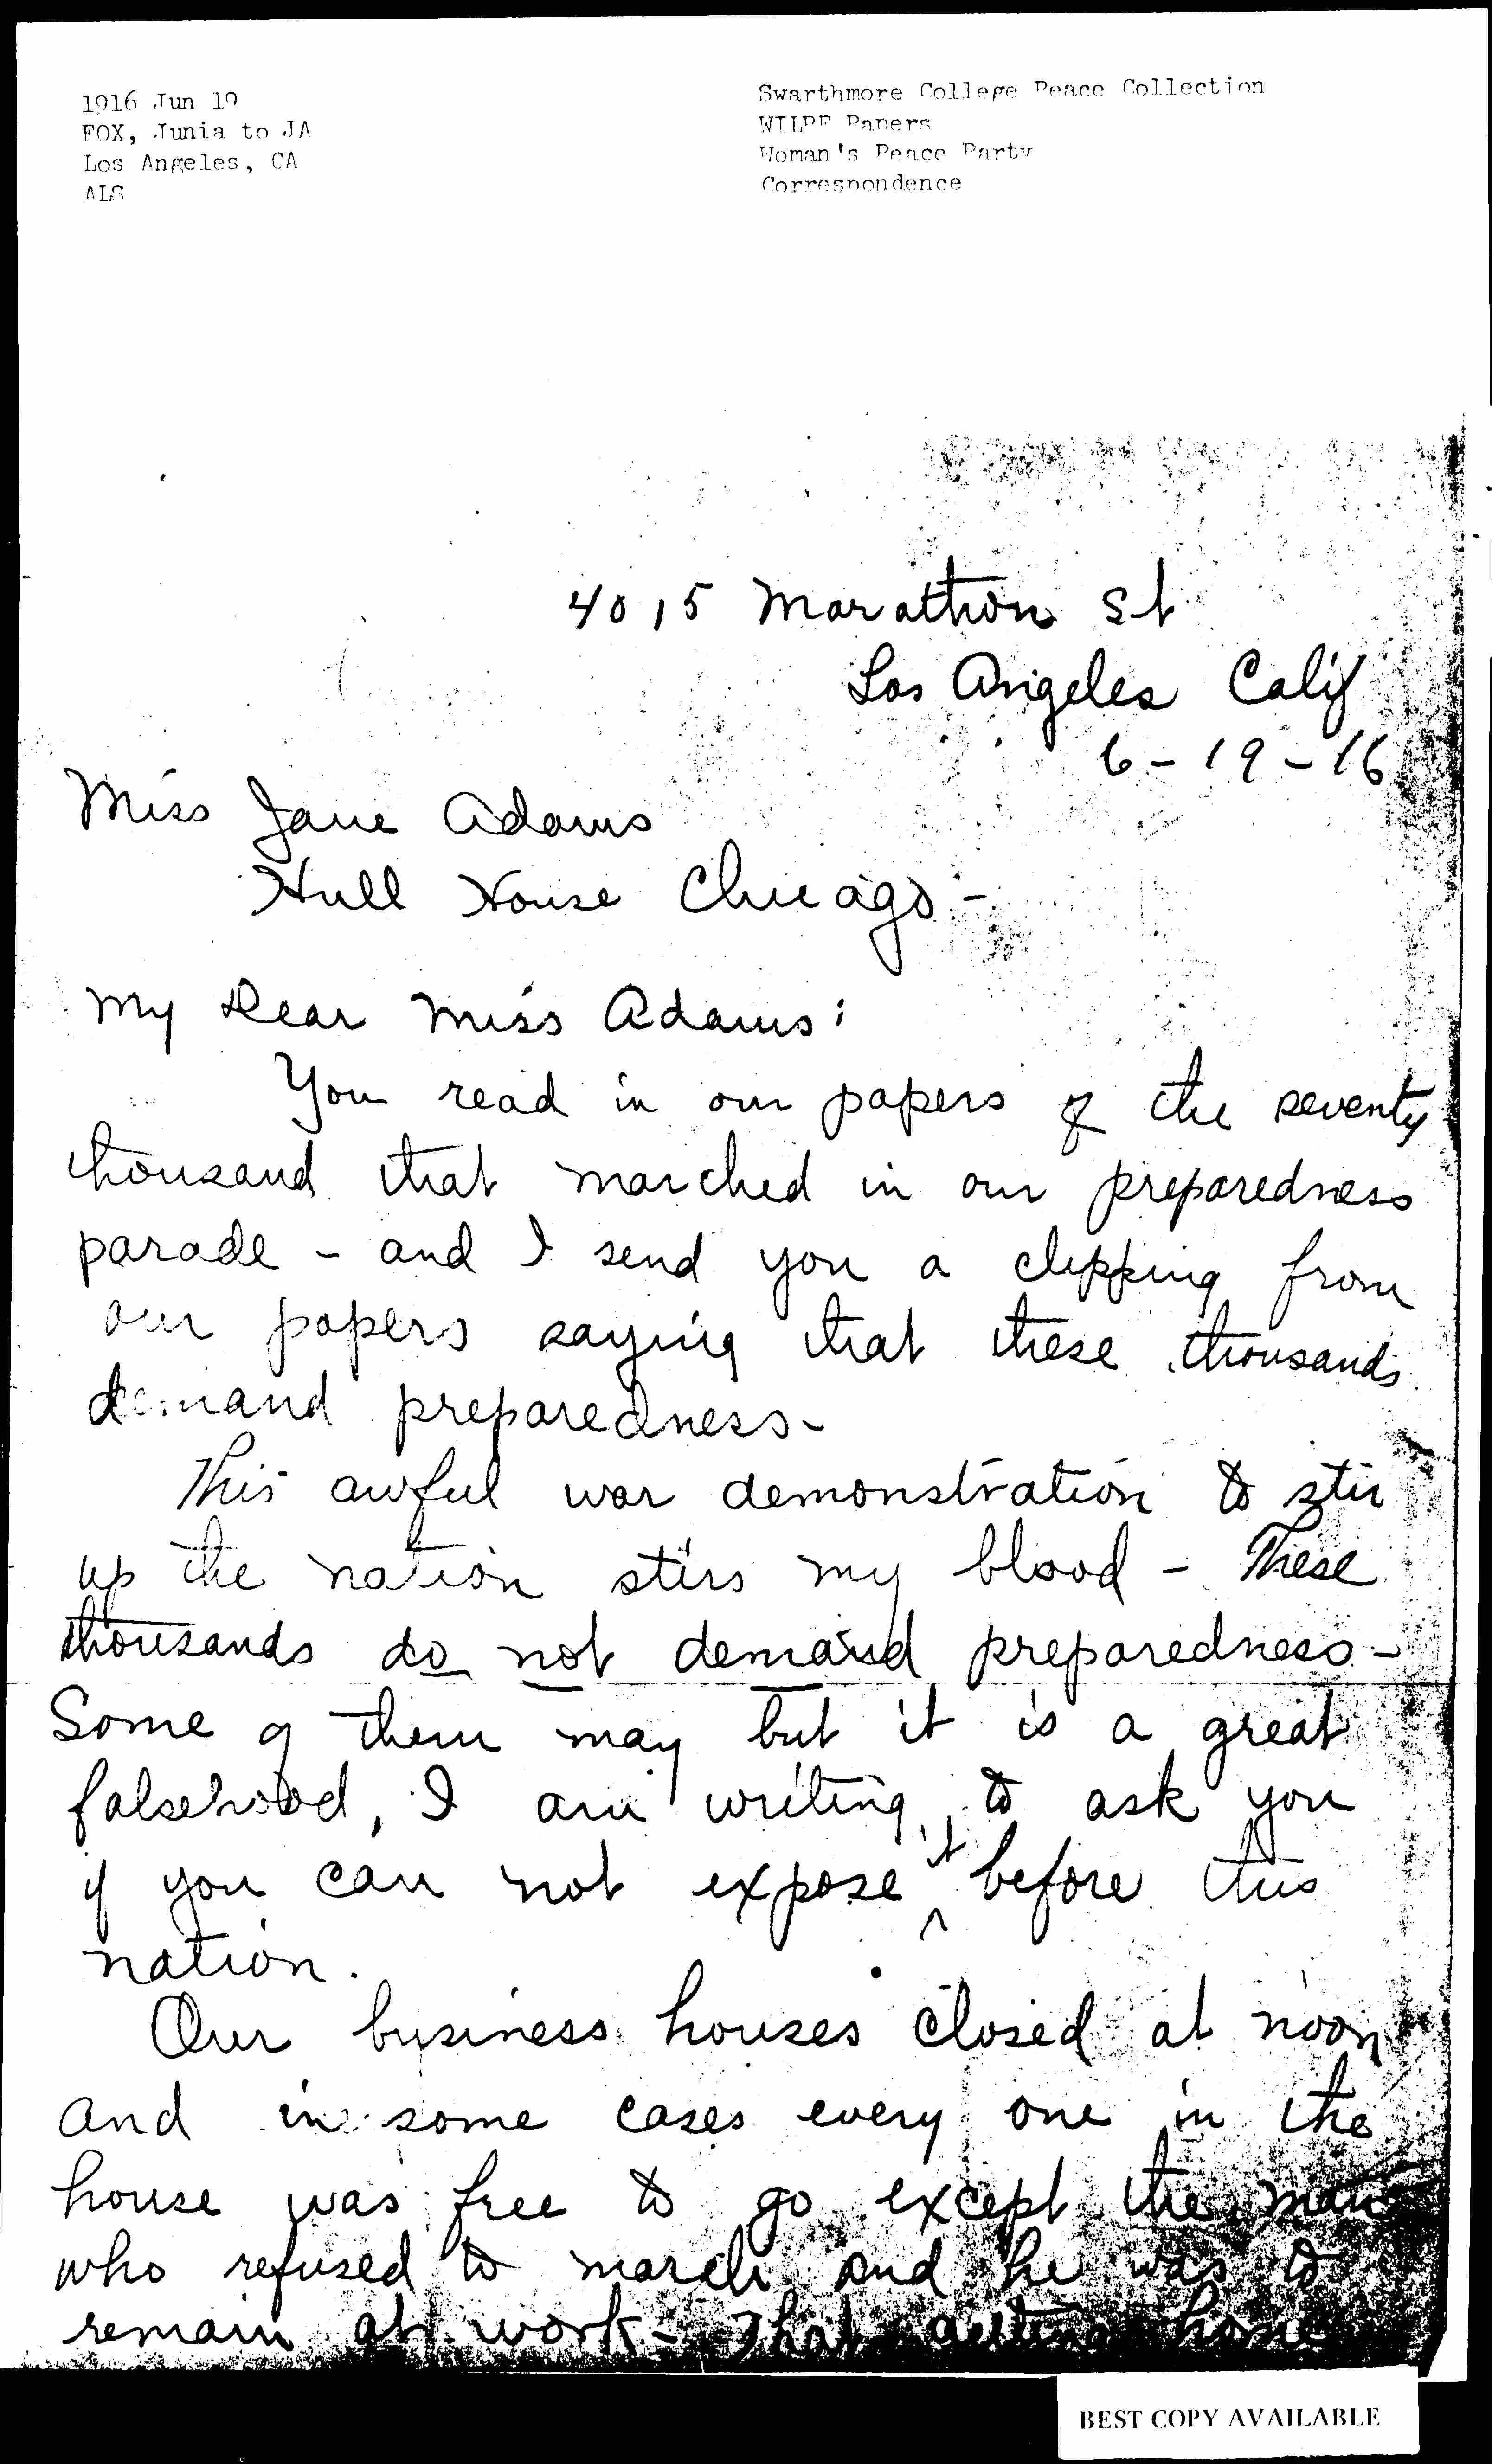 1916 Jun 19
FOX, Junia to JA
Los Angeles, CA
ALS
Swarthmore College Peace Collection
WILPF Papers
Woman's Peace Party
Correspondence
4015 Marathon St
Los Angeles Calif
6-19-16
Miss Jane Adams
Hull House Chicago-
My Dear Miss Adams:
You read in our papers of the seventy
thousand that marched in our preparedness
parade - and I send you a clipping from
our papers saying that these thousands
demand preparedness-
This awful war demonstration to stir
up the nation stirs my blood - These
thousands do not demand preparedness-
Some of them may but it is a great
falsehood, I am writing, to ask you
if you can not expose it before this
nation.
Our business houses closed at noon
and in some cases every one in the
house was free to go except the man
who refused to march and he was to
remain at work - That getting home
BEST COPY AVAILABLE